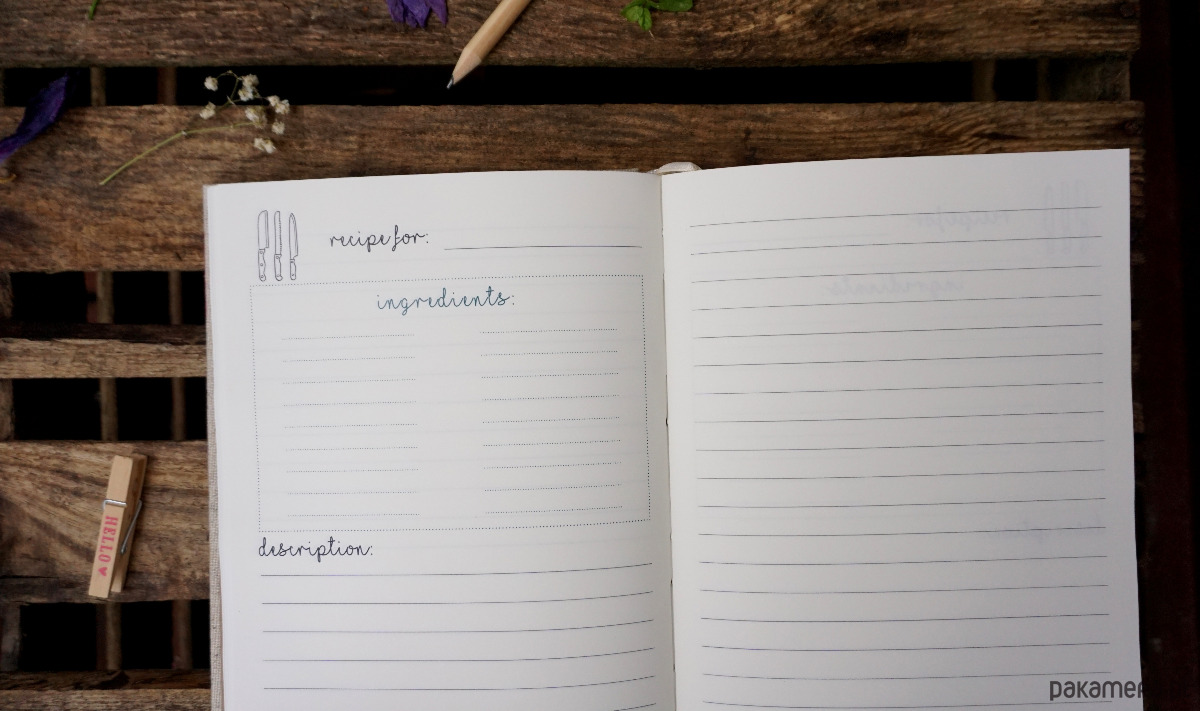 recipe for:
ingredients:
description:
HELLO♥